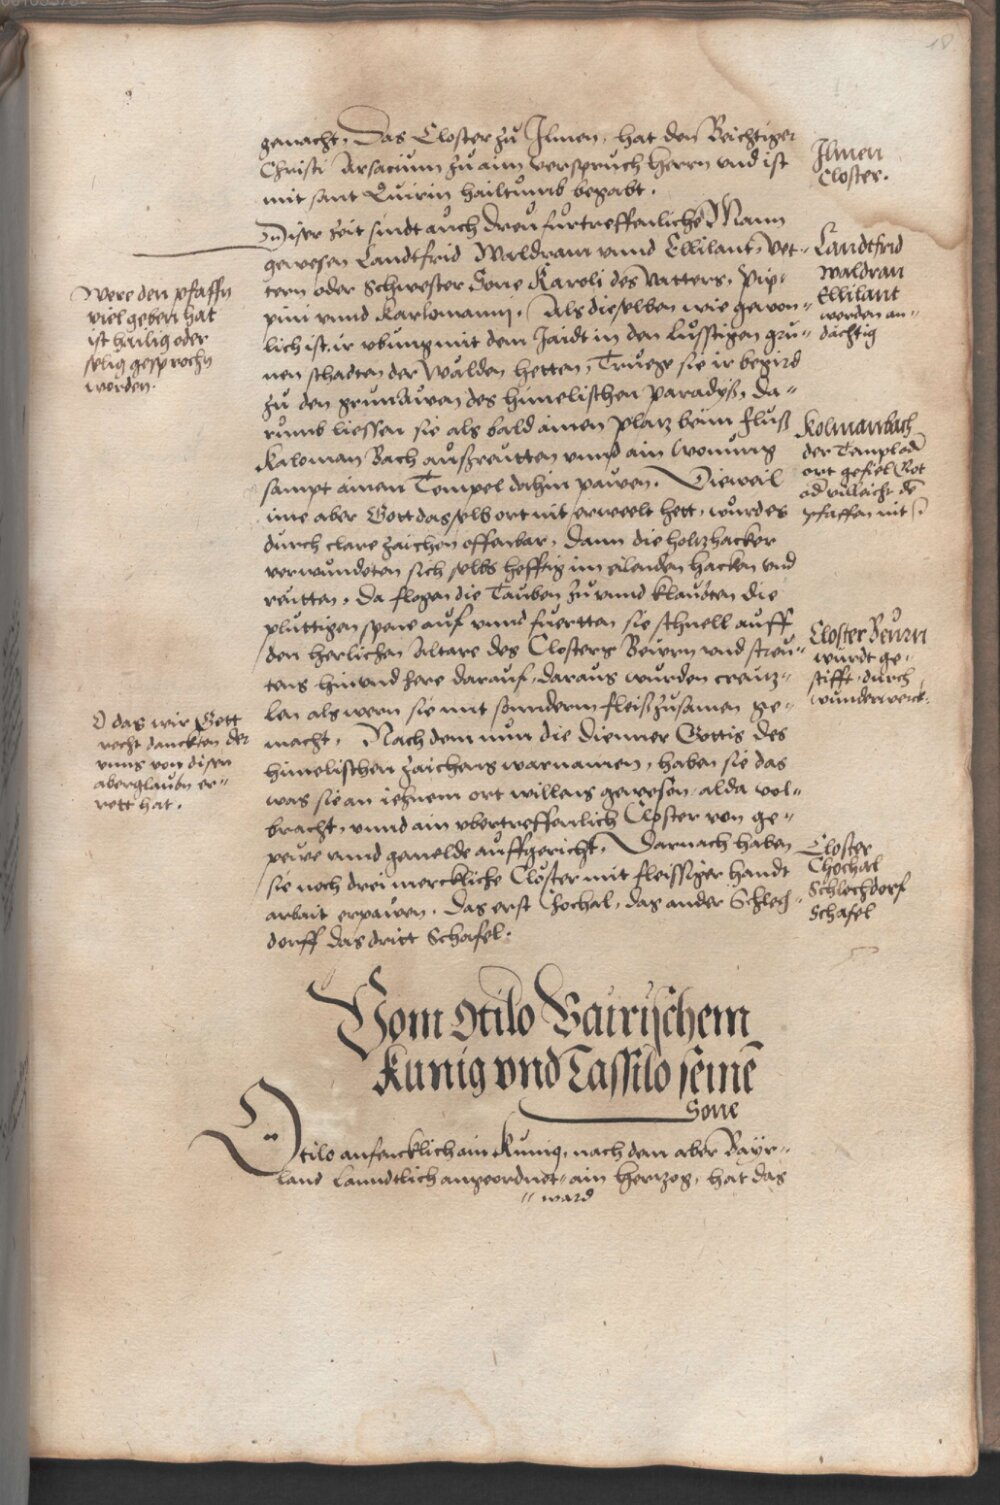 18
gemacht. Das Closter zů Ilmen, hat den Beichtiger
Christi Arsacium zů aim versprůch herrn vnd ist
mit sant Quirin hailtůmb begabt.
Ilmen
Closter.
Diser zeit sindt aůch dreÿ fůrtreffenliche Mann
gewesen Landtfrid Waldram vnnd Ellilant, Vet-
tern oder Schwester Sone Karoli des Vatters, Pip-
pini vnnd Karlomanni. Als dieselben wie gewon-
lich ist, ir vbung mit dem Jaidt in den lůsstigen grů-
nen schadten der Wälden hetten, Trůege sie ir begird
zů den grůnawen des himelischen Paradyß, da-
rumb liessen sie als bald ainen platz beim flůß
Kaloman Bach außreutten vnnd ain wonung
sampt ainem Tempel dahin pawen. Dieweil
ime aber Gott dasselb ort nit erweelt hett, wůrd es
durch clare zaichen offenbar. Dann die holtzhacker
verwůndeten sich selbs hefftig im eilenden hacken vnd
reutten. Da flogen die Tauben zů vnnd klaubten die
pluttigen spene auf vnnd fuertten sie schnell auff
den herlichen Altare des Closters Beüren vnd streu-
tens hin vnd here darauf, daraus wurden creutz-
len als wern sie mit sonnderm fleiß zusamen ge-
macht. Nach dem nun die Diener Gottis des
himelischen zaichens warnamen, haben sie das
was sie an iehnem ort willens gewesen alda vol-
bracht, vnnd ain vbertreffenlich Closter von ge-
peüe vnnd gemelde auffgericht. Darnach haben
sie noch drei merckliche Clöster mit fleissiger handt
arbait erpawen. Das erst Chochal, das ander Schlech-
dorff das dritt Schafel.
Were den pfaffn
viel geben hat
ist heilig oder
selig gesprochn
worden.
O das wir Gott
recht danckten der
vnns von disen
aberglauben er-
rett hat.
Landtfrid
Waldran
Ellilant
werden an-
dächtig
Kolmanbach
der Tempel
ort gefiel Got
villeicht
pfaffen nit
Closter Beurn
wurdt ge-
stifft durch
wunderwerck.
Closter
Chochal
Schlechdorf
Schafel
Vom Otilo Bairischem
Kunig vnd Tassilo seinē
Sone
Otilo anfencklich ain Kunig, nach dem aber Baÿr-
land Lanndtlich angeordnet ain Hertzog, hat das
ward